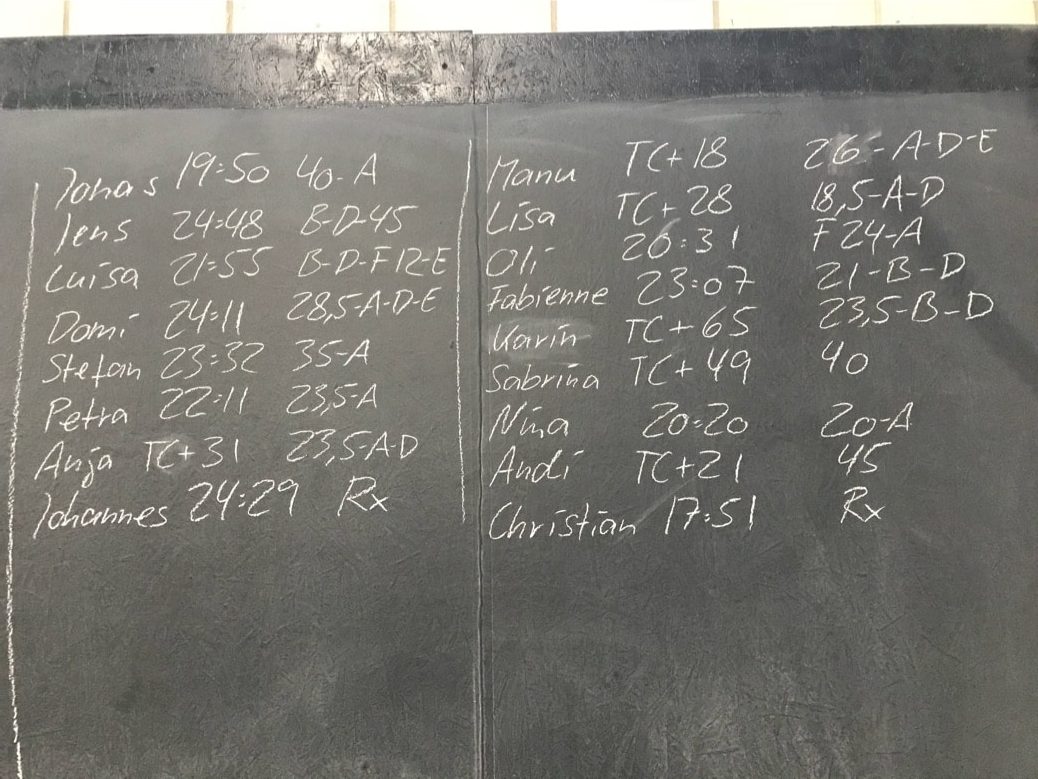 Jonas 19:50 40-A
Jens 24:48 B-D-45
Luisa 21:55 B-D-F12-E
Domi 24:11 28,5-A-D-E
Stefan 23:32 35-A
Petra 22:11 23,5-A
Anja TC+31 23,5-A-D
Johannes 24:29 Rx
Manu TC+18 26-A-D-E
Lisa TC+28 18,5-A-D
Oli 20:31 F24-A
Fabienne 23:07 21-B-D
Karin TC+65 23,5-B-D
Sabrina TC+49 40
Nina 20:20 20-A
Andi TC+21 45
Christian 17:51 Rx